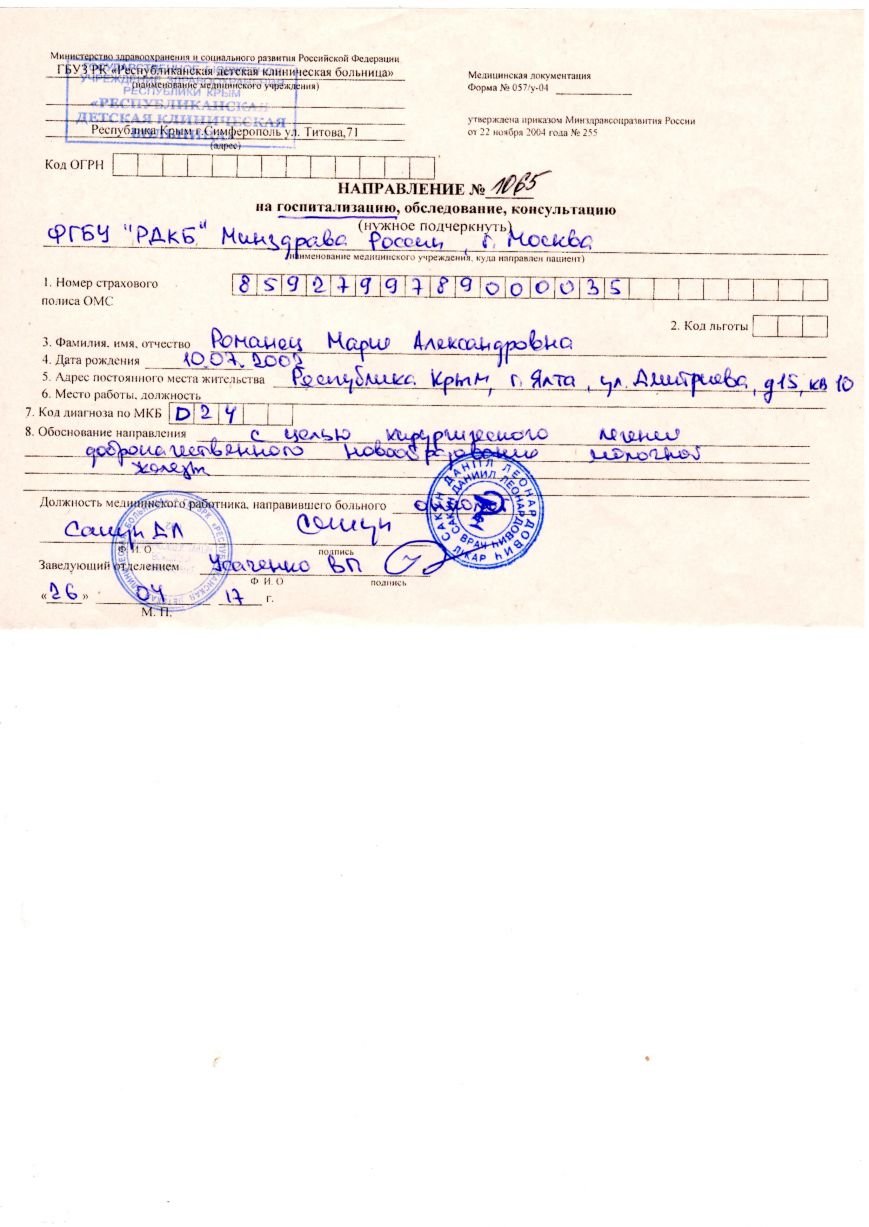 Министерство здравоохранения и социального развития Российской Федерации
ГБУЗ РК «Республиканская детская клиническая больница»
(наименование медицинского учреждения)
Республика Крым г.Симферополь ул. Титова,71
(адрес)
ГОСУДАРСТВЕННОЕ БЮДЖЕТНОЕ
УЧРЕЖДЕНИЕ ЗДРАВООХРАНЕНИЯ
РЕСПУБЛИКИ КРЫМ
«РЕСПУБЛИКАНСКАЯ
ДЕТСКАЯ КЛИНИЧЕСКАЯ
БОЛЬНИЦА»
Медицинская документация
Форма № 057/у-04
утверждена приказом Минздравсоцразвития России
от 22 ноября 2004 года № 255
Код ОГРН
НАПРАВЛЕНИЕ № 1065
на госпитализацию, обследование, консультацию
(нужное подчеркнуть)
ФГБУ "РДКБ" Минздрава России, г. Москва
(наименование медицинского учреждения, куда направлен пациент)
1. Номер страхового
полиса ОМС 8592799789000035
2. Код льготы
3. Фамилия, имя, отчество Романец Мария Александровна
4. Дата рождения 10.07.2002
5. Адрес постоянного места жительства Республика Крым, г. Ялта, ул. Дмитриева, д 15, кв 10
6. Место работы, должность
7. Код диагноза по МКБ D24
8. Обоснование направления с целью хирургического лечения
доброкачественного новообразования молочной
железы
Должность медицинского работника, направившего больного онколог
Сакун ДЛ Сакун
Ф. И. О подпись
Заведующий отделением Усаченко ВП
Ф. И. О подпись
«26» 04 17 г.
М. П.
САКУН ДАНІІЛ ЛЕОНАРДОВИЧ
САКУН ДАНИИЛ ЛЕОНАРДОВИЧ
ВРАЧ
ЛІКАР